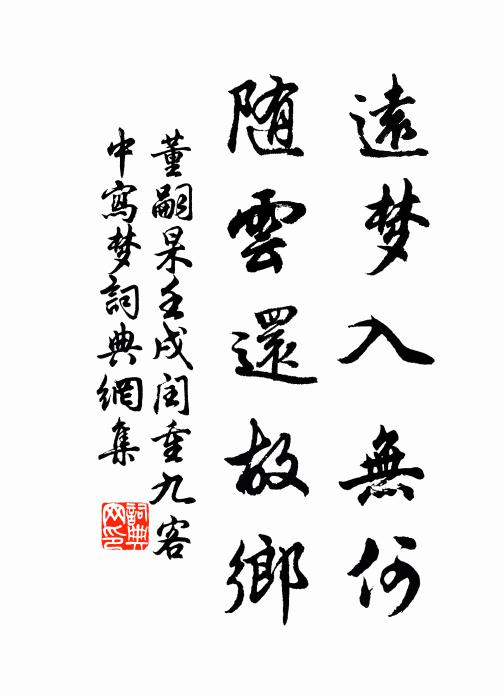 遠梦入無何
随雲還故鄉
董嗣杲壬戌闰重九客
中寫梦詞典網集
詞典网印